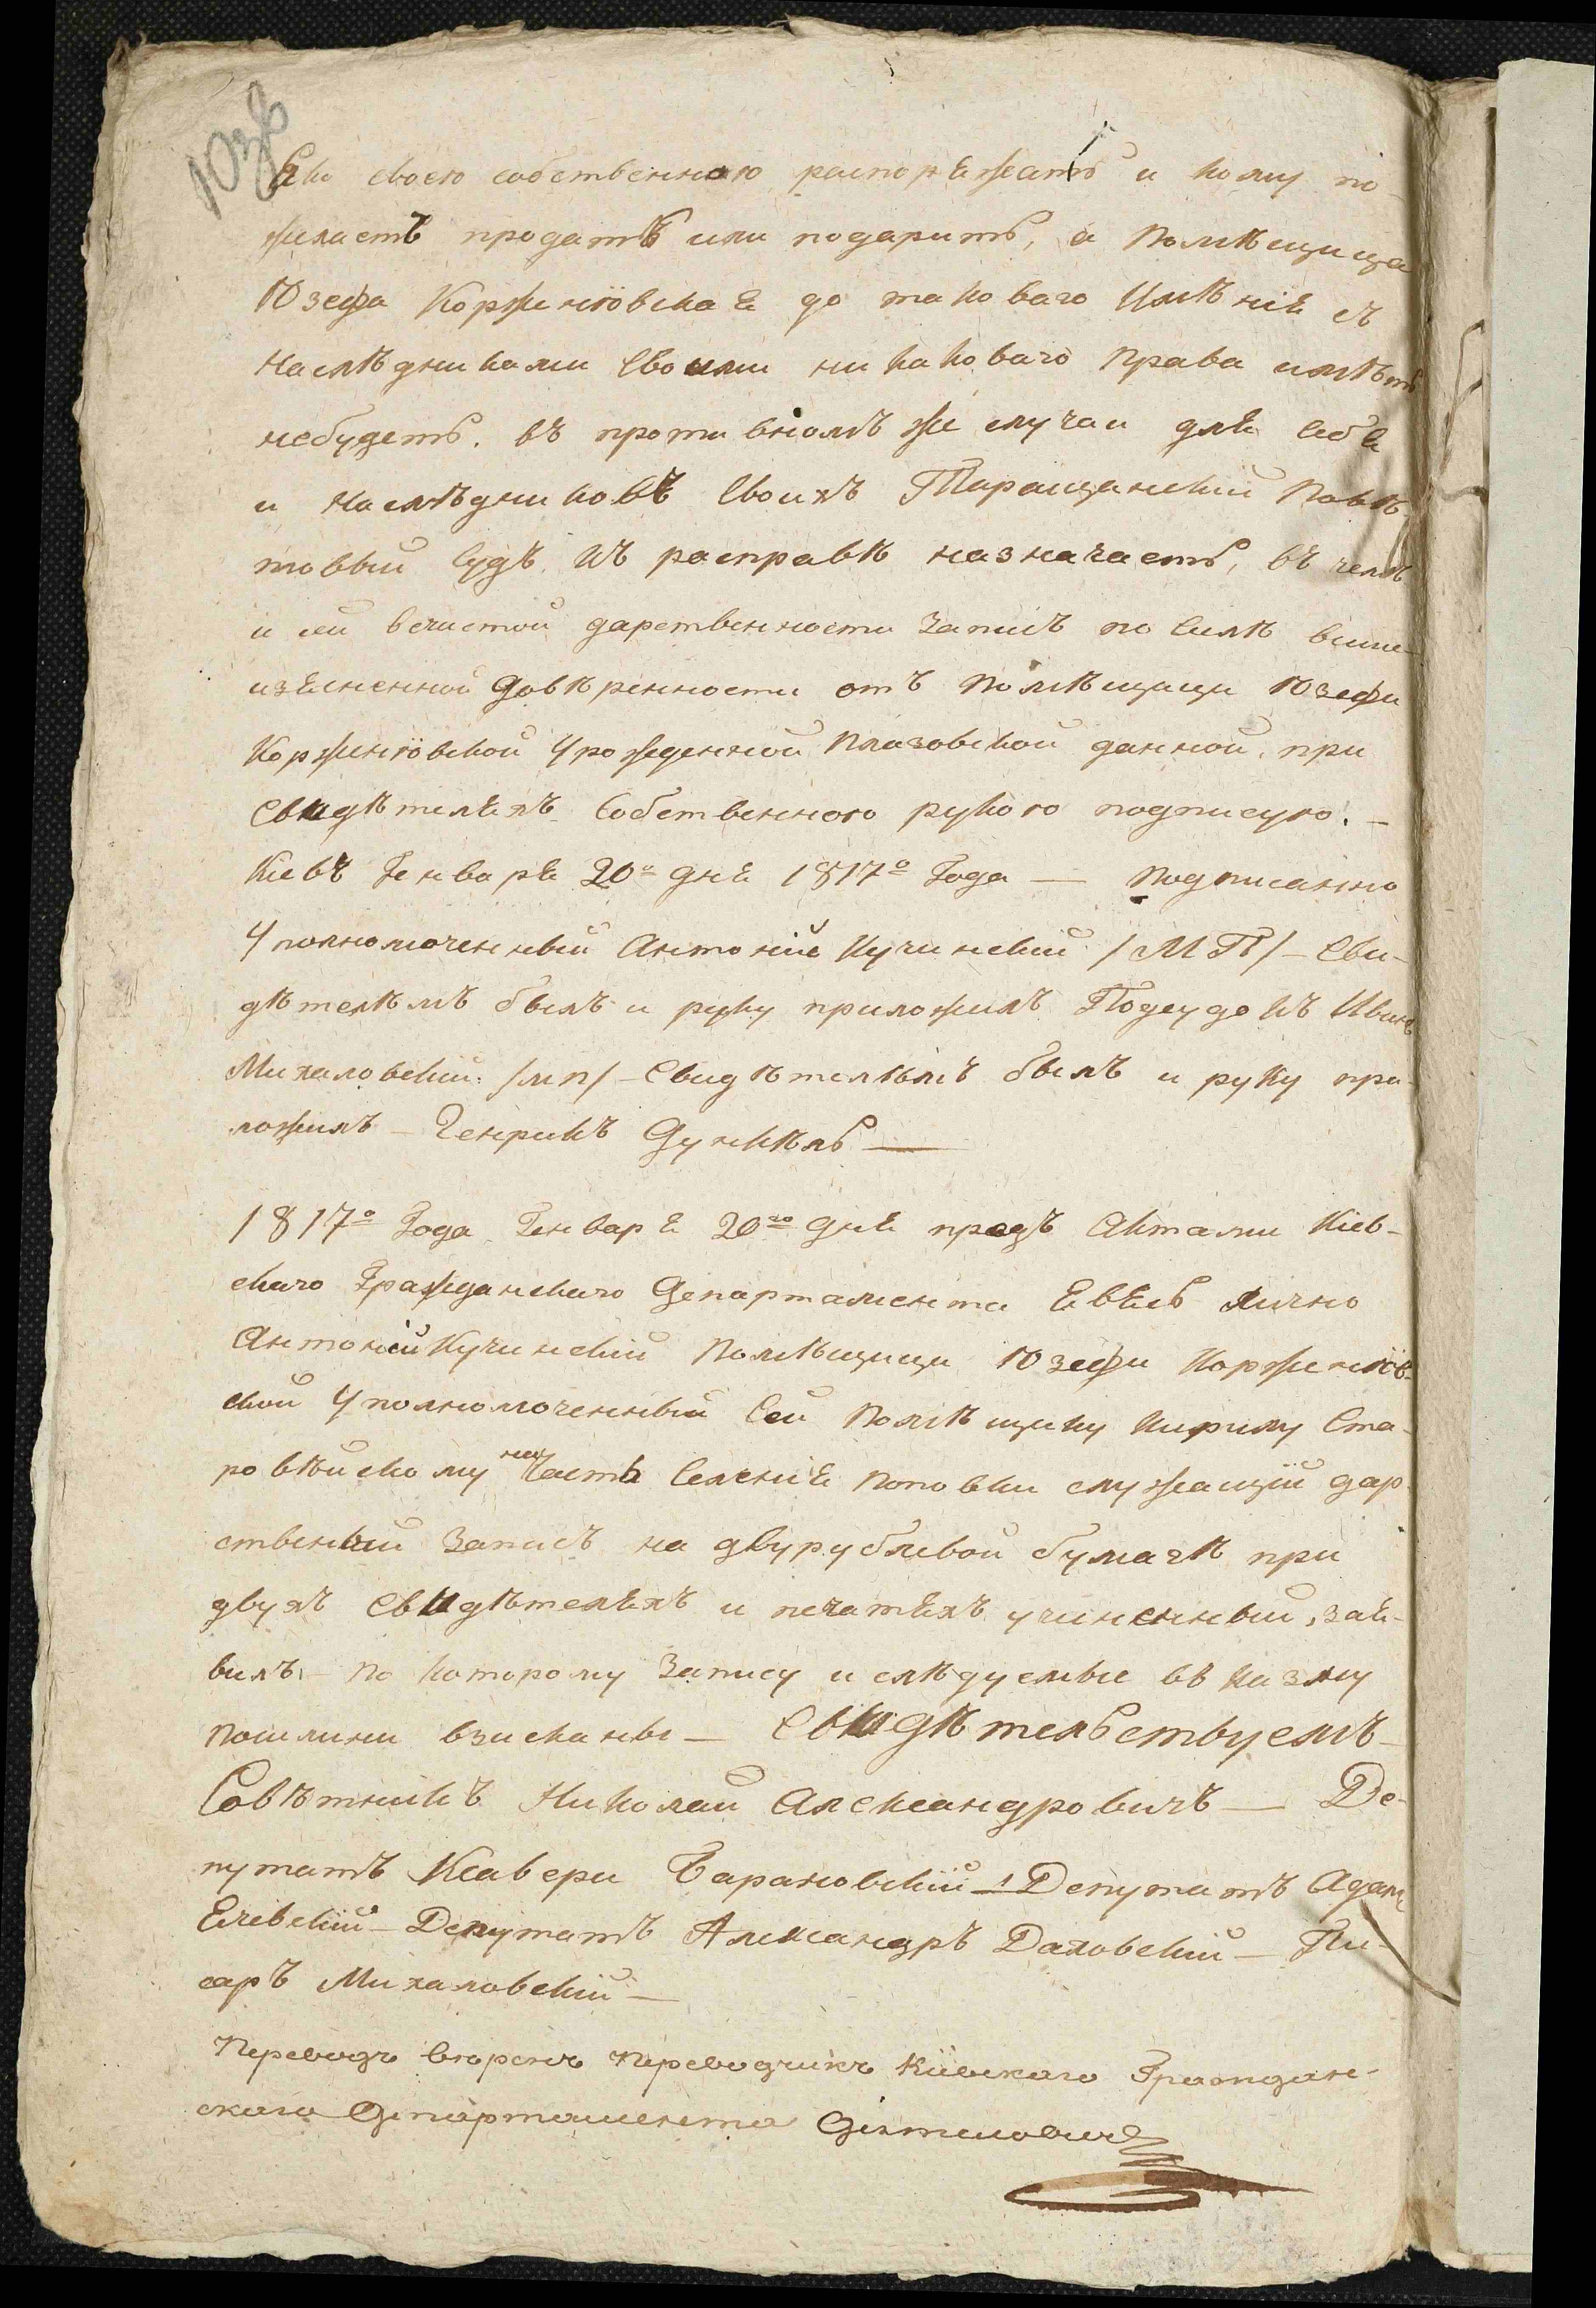 103б
Яко своею собственною распоряжать и кому по-
жилаетъ продатъ или подарить, а Помѣщица
Юзефа Корженіовская до таковаго Имѣнія съ
наслѣдниками своими никаковаго права имѣть
небудетъ. въ противномъ же случаи для себя
и наслѣдниковъ своихъ Таращанскій Повѣ-
товый Судъ къ расправѣ назначаетъ, въ чемъ
и сей вечистой дарственности записъ по силѣ више-
изясненной Довѣренности отъ Помѣщици Юзефи
Корженіовской урожденной Плазовской данной, при
свидѣтеляхъ собственною рукою подписую. —
Кіевъ Генваря 20о Дня 1817о Года — Подписанно
Уполномоченный Антоній Кучинскій /МП/ — Сви-
дѣтелѣмъ былъ и руку приложилъ Подсудокъ Иванъ
Михаловскій /мп/ — Свидѣтелѣмъ былъ и руку при-
ложилъ — Генрикъ Дункѣль —
1817о Года Генваря 20го Дня предъ Актами Кіев-
скаго Гражданскаго Департамента явясь лично
Антоній Кучинскій Помѣщици Юзефи Корженіов-
ской Уполномоченный сей Помѣщику Кирилу Ста-
ровѣйскому на часть Селенія Поповки служащій дар-
ственный записъ на двурублевой бумагѣ при
двухъ свидѣтеляхъ и печатяхъ учиненный, зая-
вилъ, — по которому запису и слѣдуемые въ казну
пошлини взисканы — Свидѣтельствуемъ —
Совѣтникъ Николай Александровичъ — Де-
путатъ Ксавери Барановскій — Депутатъ Адамъ
Ячевскій — Депутатъ Александръ Даховскій — Пи-
саръ Михаловскій —
Переводъ вѣренъ Переводчикъ Кіевскаго Граждан-
скаго Департамента